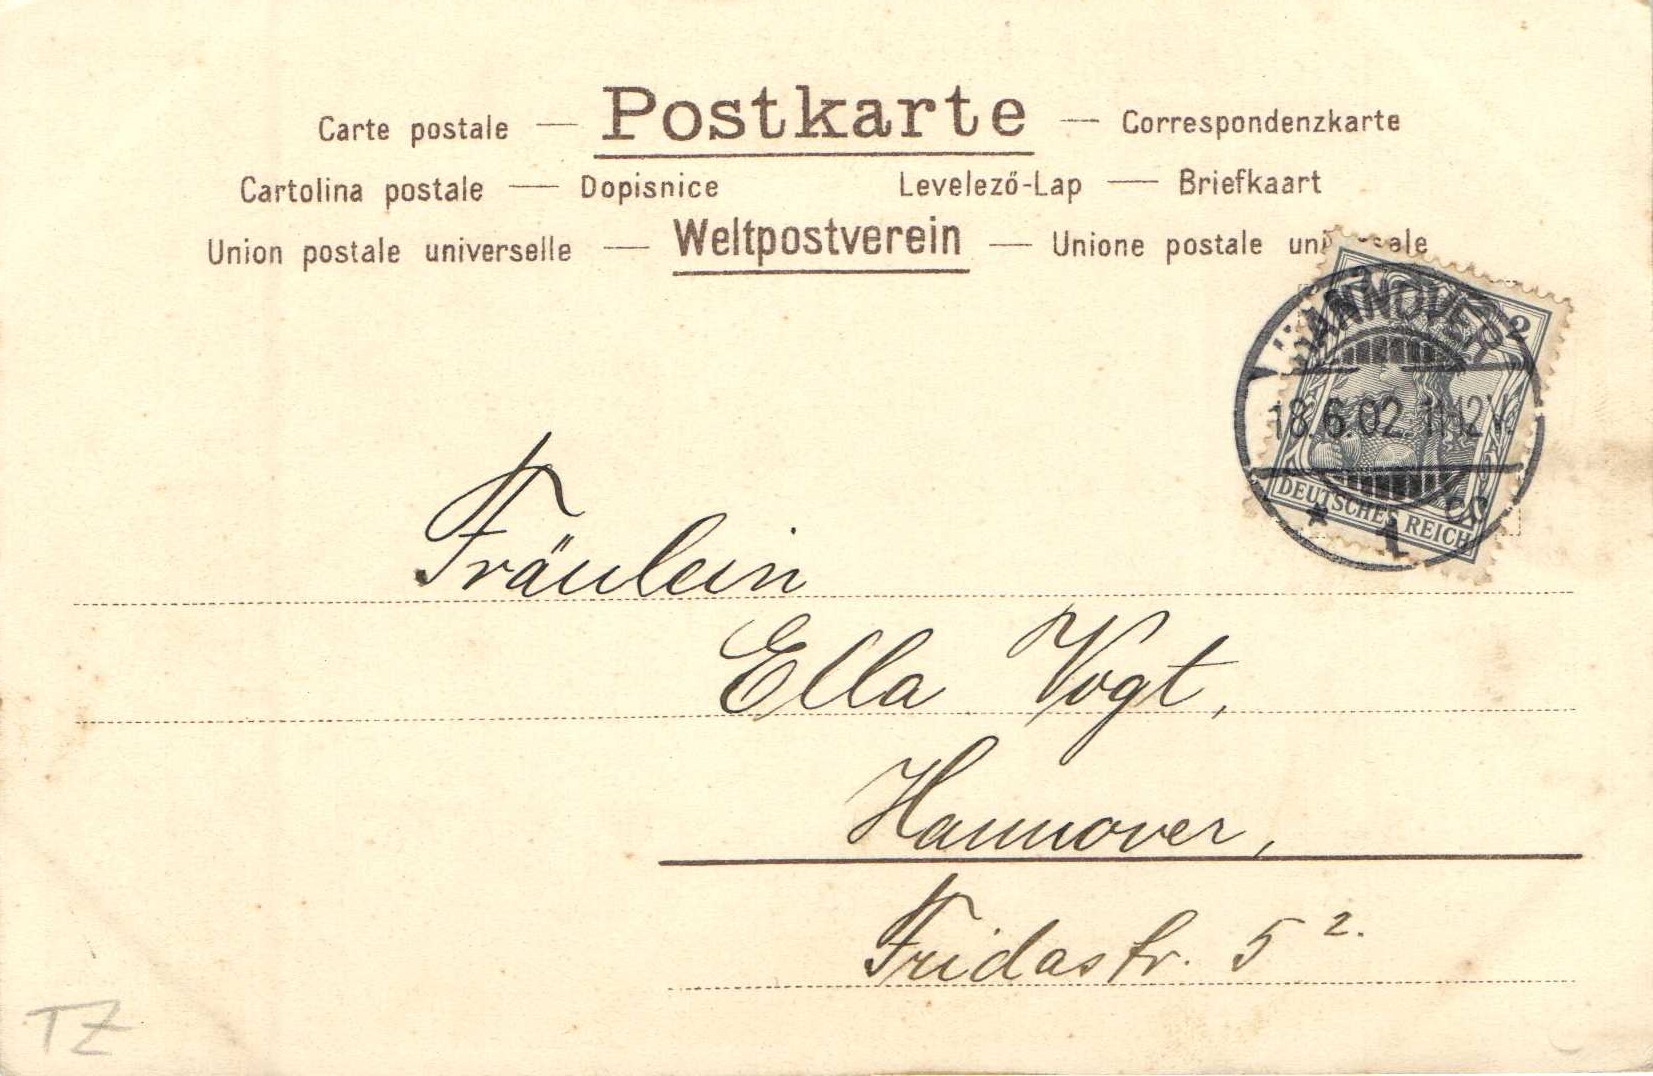 Carte postale — Postkarte — Correspondenzkarte
Cartolina postale — Dopisnice Levelező-Lap — Briefkaart
Union postale universelle — Weltpostverein — Unione postale
HANNOVER
2
18.6.02.11-12V.
DEUTSCHES REICH
* 1 cc
Fräulein
Ella Vogt,
Hannover,
Fridastr. 5 2.
TZ